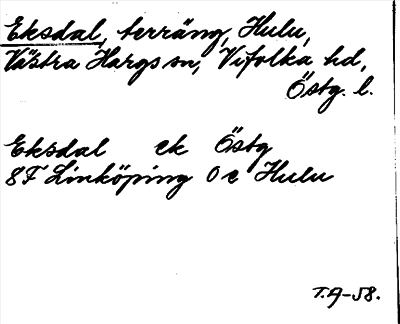 Eksdal, terräng, Hulu,
Västra Hargs sn, Vifolka hd,
Östg. l.
Eksdal ek Östg
8F Linköping 0e Hulu
T.A-58.